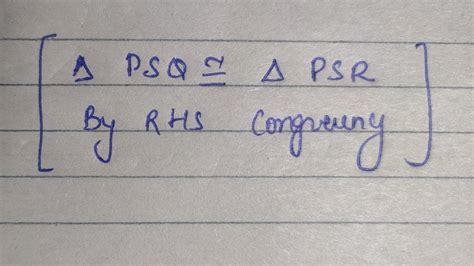 [ Δ PSQ ≅ Δ PSR
By RHS Congruency ]